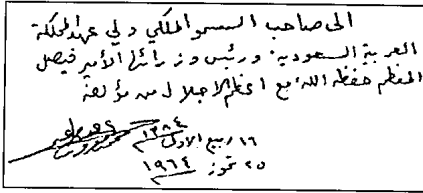 الى صاحب السمو الملكي ولي عهد المملكة
العربية السعودية، ورئيس وزرائها الأمير فيصل
المعظم حفظه الله، مع اعظم الاجلال من مؤلفه
١٦ ربيع الاول ١٣٨٤
٢٥ تموز ١٩٦٤